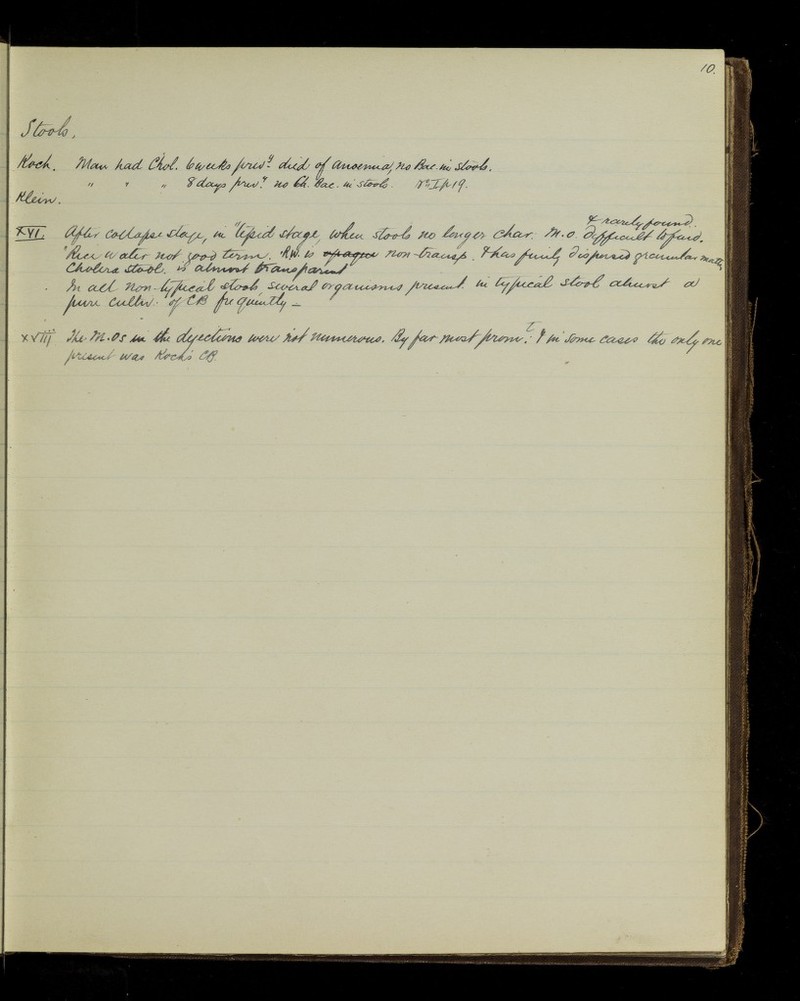 10.
Stools.
Koch. Man had Chol. 6 weeks prevy. died of anaemia, no Bac. in stools.
" " " 8 days prevy. no Ch. Bac. in stools. I p 19.
Klein.
& rarely found.
XVI. After collapse stage, in tepid stage, when stools no longer char. M.O. difficult to find.
"Rice water not good term. R.W. is opaque non-transp. & has finely dispersed granular matter
Cholera stool. is almost transparent"
In all non-typical stools several organisms present. in typical stool almost a
pure cultiv. of CB frequently –
XVIII The M.Os in the dejections were not numerous. By far most promt. & in some cases the only one
present was Koch's CB.